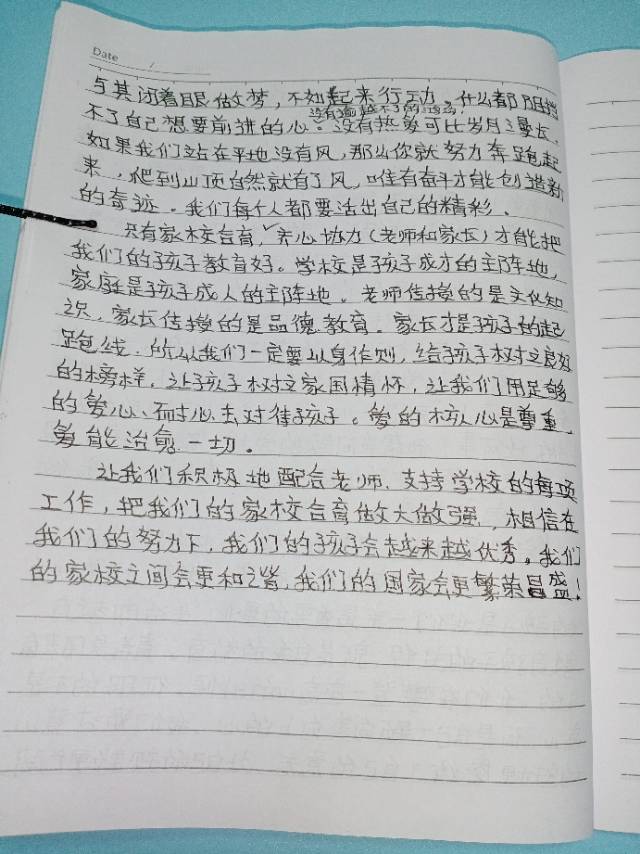 Date /
与其闭着眼做梦，不如起来行动。什么都阻挡
没有逾越不了的
不了自己想要前进的心。没有热爱可比岁月漫长，
如果我们站在平地没有风，那么你就努力奔跑起
来，爬到山顶自然就有了风，唯有奋斗才能创造新
的奇迹。我们每个人都要活出自己的精彩。
只有家校合育，齐心协力（老师和家长）才能把
我们的孩子教育好。学校是孩子成才的主阵地，
家庭是孩子成人的主阵地。老师传授的是文化知
识，家长传授的是品德教育。家长才是孩子的起
跑线，所以我们一定要以身作则，给孩子树立良好
的榜样，让孩子树立家国情怀，让我们用足够
的爱心、耐心去对待孩子。爱的核心是尊重，
爱能治愈一切。
让我们积极地配合老师，支持学校的每项
工作，把我们的家校合育做大做强，相信在
我们的努力下，我们的孩子会越来越优秀，我们
的家校之间会更和谐，我们的国家会更繁荣昌盛！